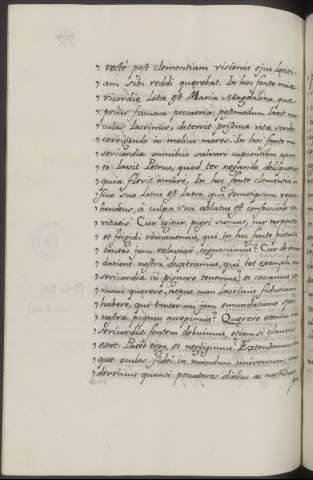 recte post clementiam visionis ejus letiti-
am sibi reddi querebat. In hoc fonte mise-
ricordiæ lota est Maria Magdalena, quæ
prius famosa peccatrix, postmodum lavit ma-
culas lacrimis, detersit pristinæ vitæ sordes
corrigendo in melius mores. In hoc fonte mi-
sericordiæ omnibus salvari cupientibus aper-
to lavit Petrus, quod ter negando deliquerat,
quia flevit amare. In hoc fonte clementiæ in
fine suo lotus est latro, qui semetipsum repre-
hendens, a culpa sua ablutus est confessione ve-
ritatis. Cur igitur pigri sumus, cur torpentes
et sordidi remanemus, qui in hoc fonte pietatis
tantos jam
nostra desperamus, qui tot exempla mi-
sericordiæ in pignore tenemus? et
veniam querere, atque cum lacrimis fiduciam
habere, qui tantorum jam emundatione spei
nostræ pignus accepimus? Querere omnino mi-
sericordiæ fontem debuimus, etiamsi clausus
esset. Patet ergo, et negligimus. Extendamus ita-
que oculos fidei in mundum universum, con-
sideremus quanti peccatores diebus ac noctibus